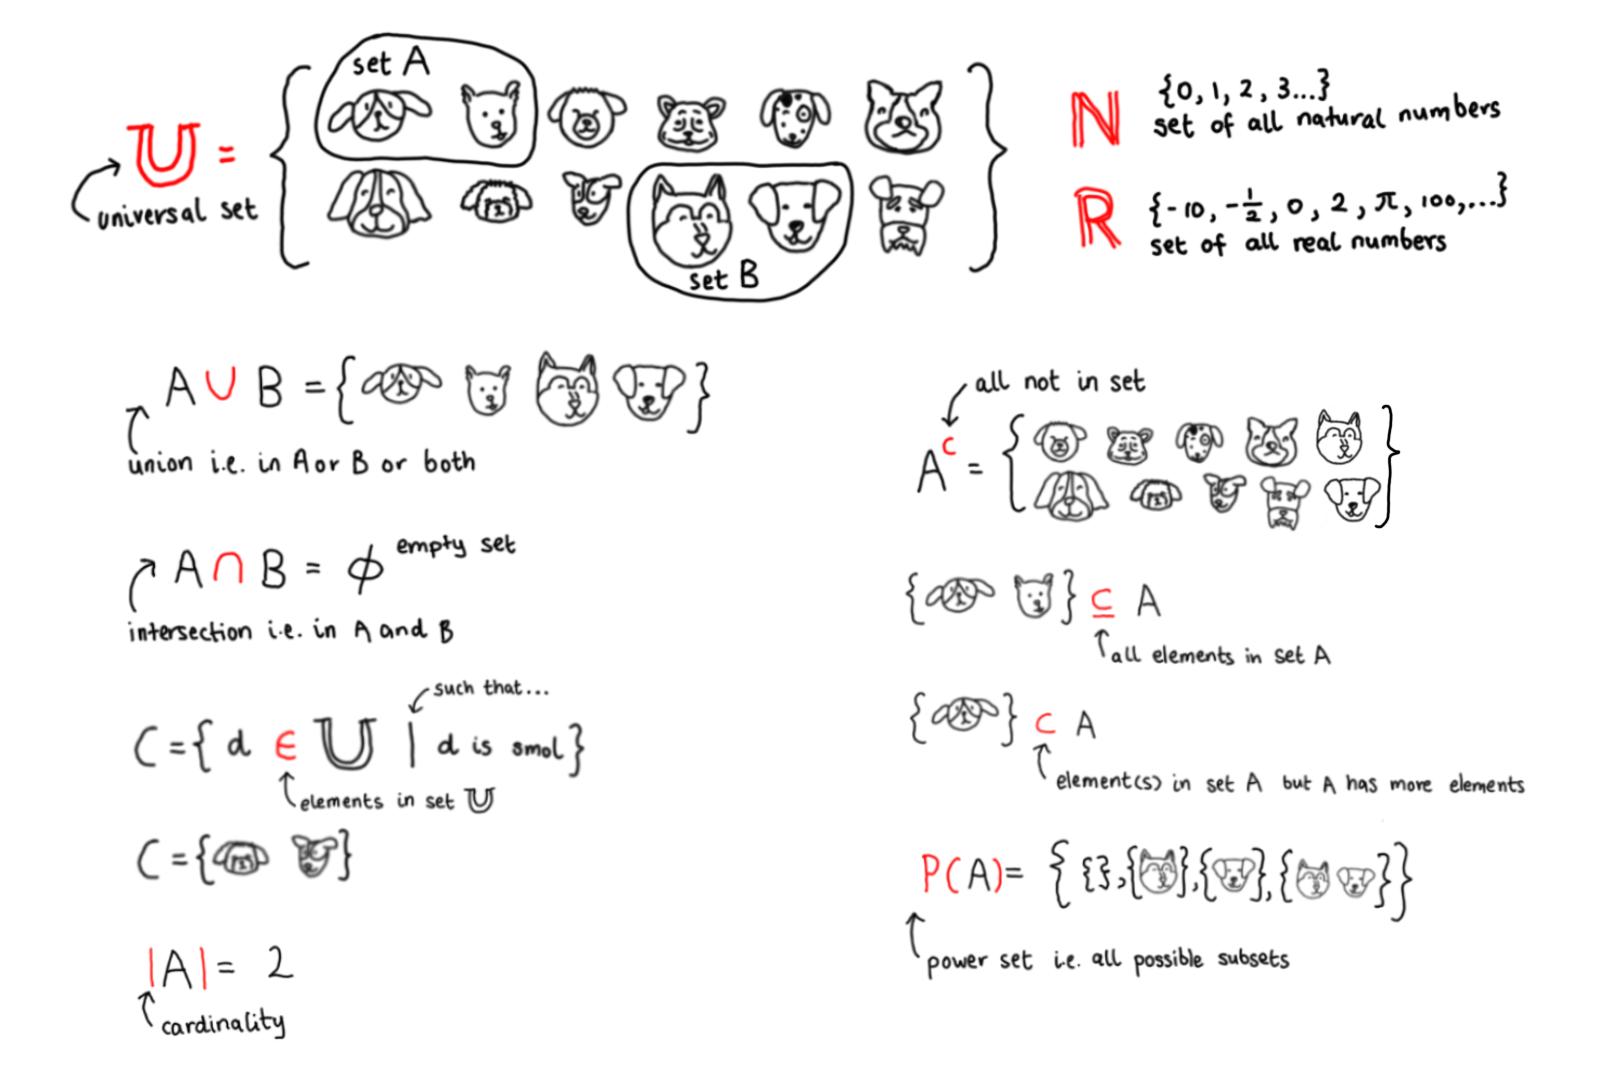 set A
𝕌 =
universal set
set B
ℕ {0, 1, 2, 3...}
set of all natural numbers
ℝ {-10, -1/2, 0, 2, π, 100,...}
set of all real numbers
A ∪ B = { }
union i.e. in A or B or both
A ∩ B = ϕ empty set
intersection i.e. in A and B
such that...
C = { d ∈ 𝕌 | d is smol }
elements in set 𝕌
C = { }
|A| = 2
cardinality
all not in set
Aᶜ = { }
{ } ⊆ A
all elements in set A
{ } ⊂ A
element(s) in set A but A has more elements
P(A) = { {}, { }, { }, { } }
power set i.e. all possible subsets